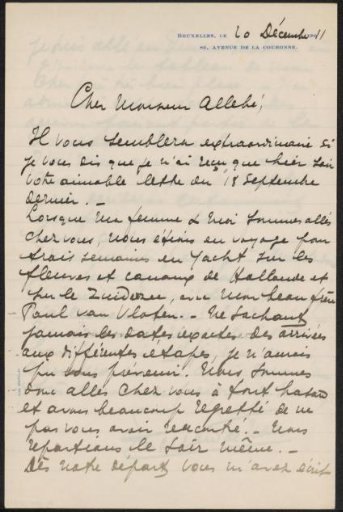 BRUXELLES, LE 20 Décembre 11
86, AVENUE DE LA COURONNE.
Cher Monsieur Allebé,
Il vous semblera extraordinaire si
je vous dis que je n'ai reçu que hier soir
votre aimable lettre du 18 Septembre
dernier. —
Lorsque ma femme & moi sommes allés
chez vous, nous étions en voyage pour
trois semaines en yacht sur les
fleuves et canaux de Hollande et
sur le Zuiderzee, avec mon beau frère
Paul van Vloten. — Ne sachant
jamais les dates exactes des arrivées
aux différentes étapes, je n'avais
pu vous prévenir. Nous sommes
donc allés chez vous à tout hasard
et avons beaucoup regretté de ne
pas vous avoir rencontré. — Nous
repartions le soir même. —
Dès notre départ, vous m'avez écrit